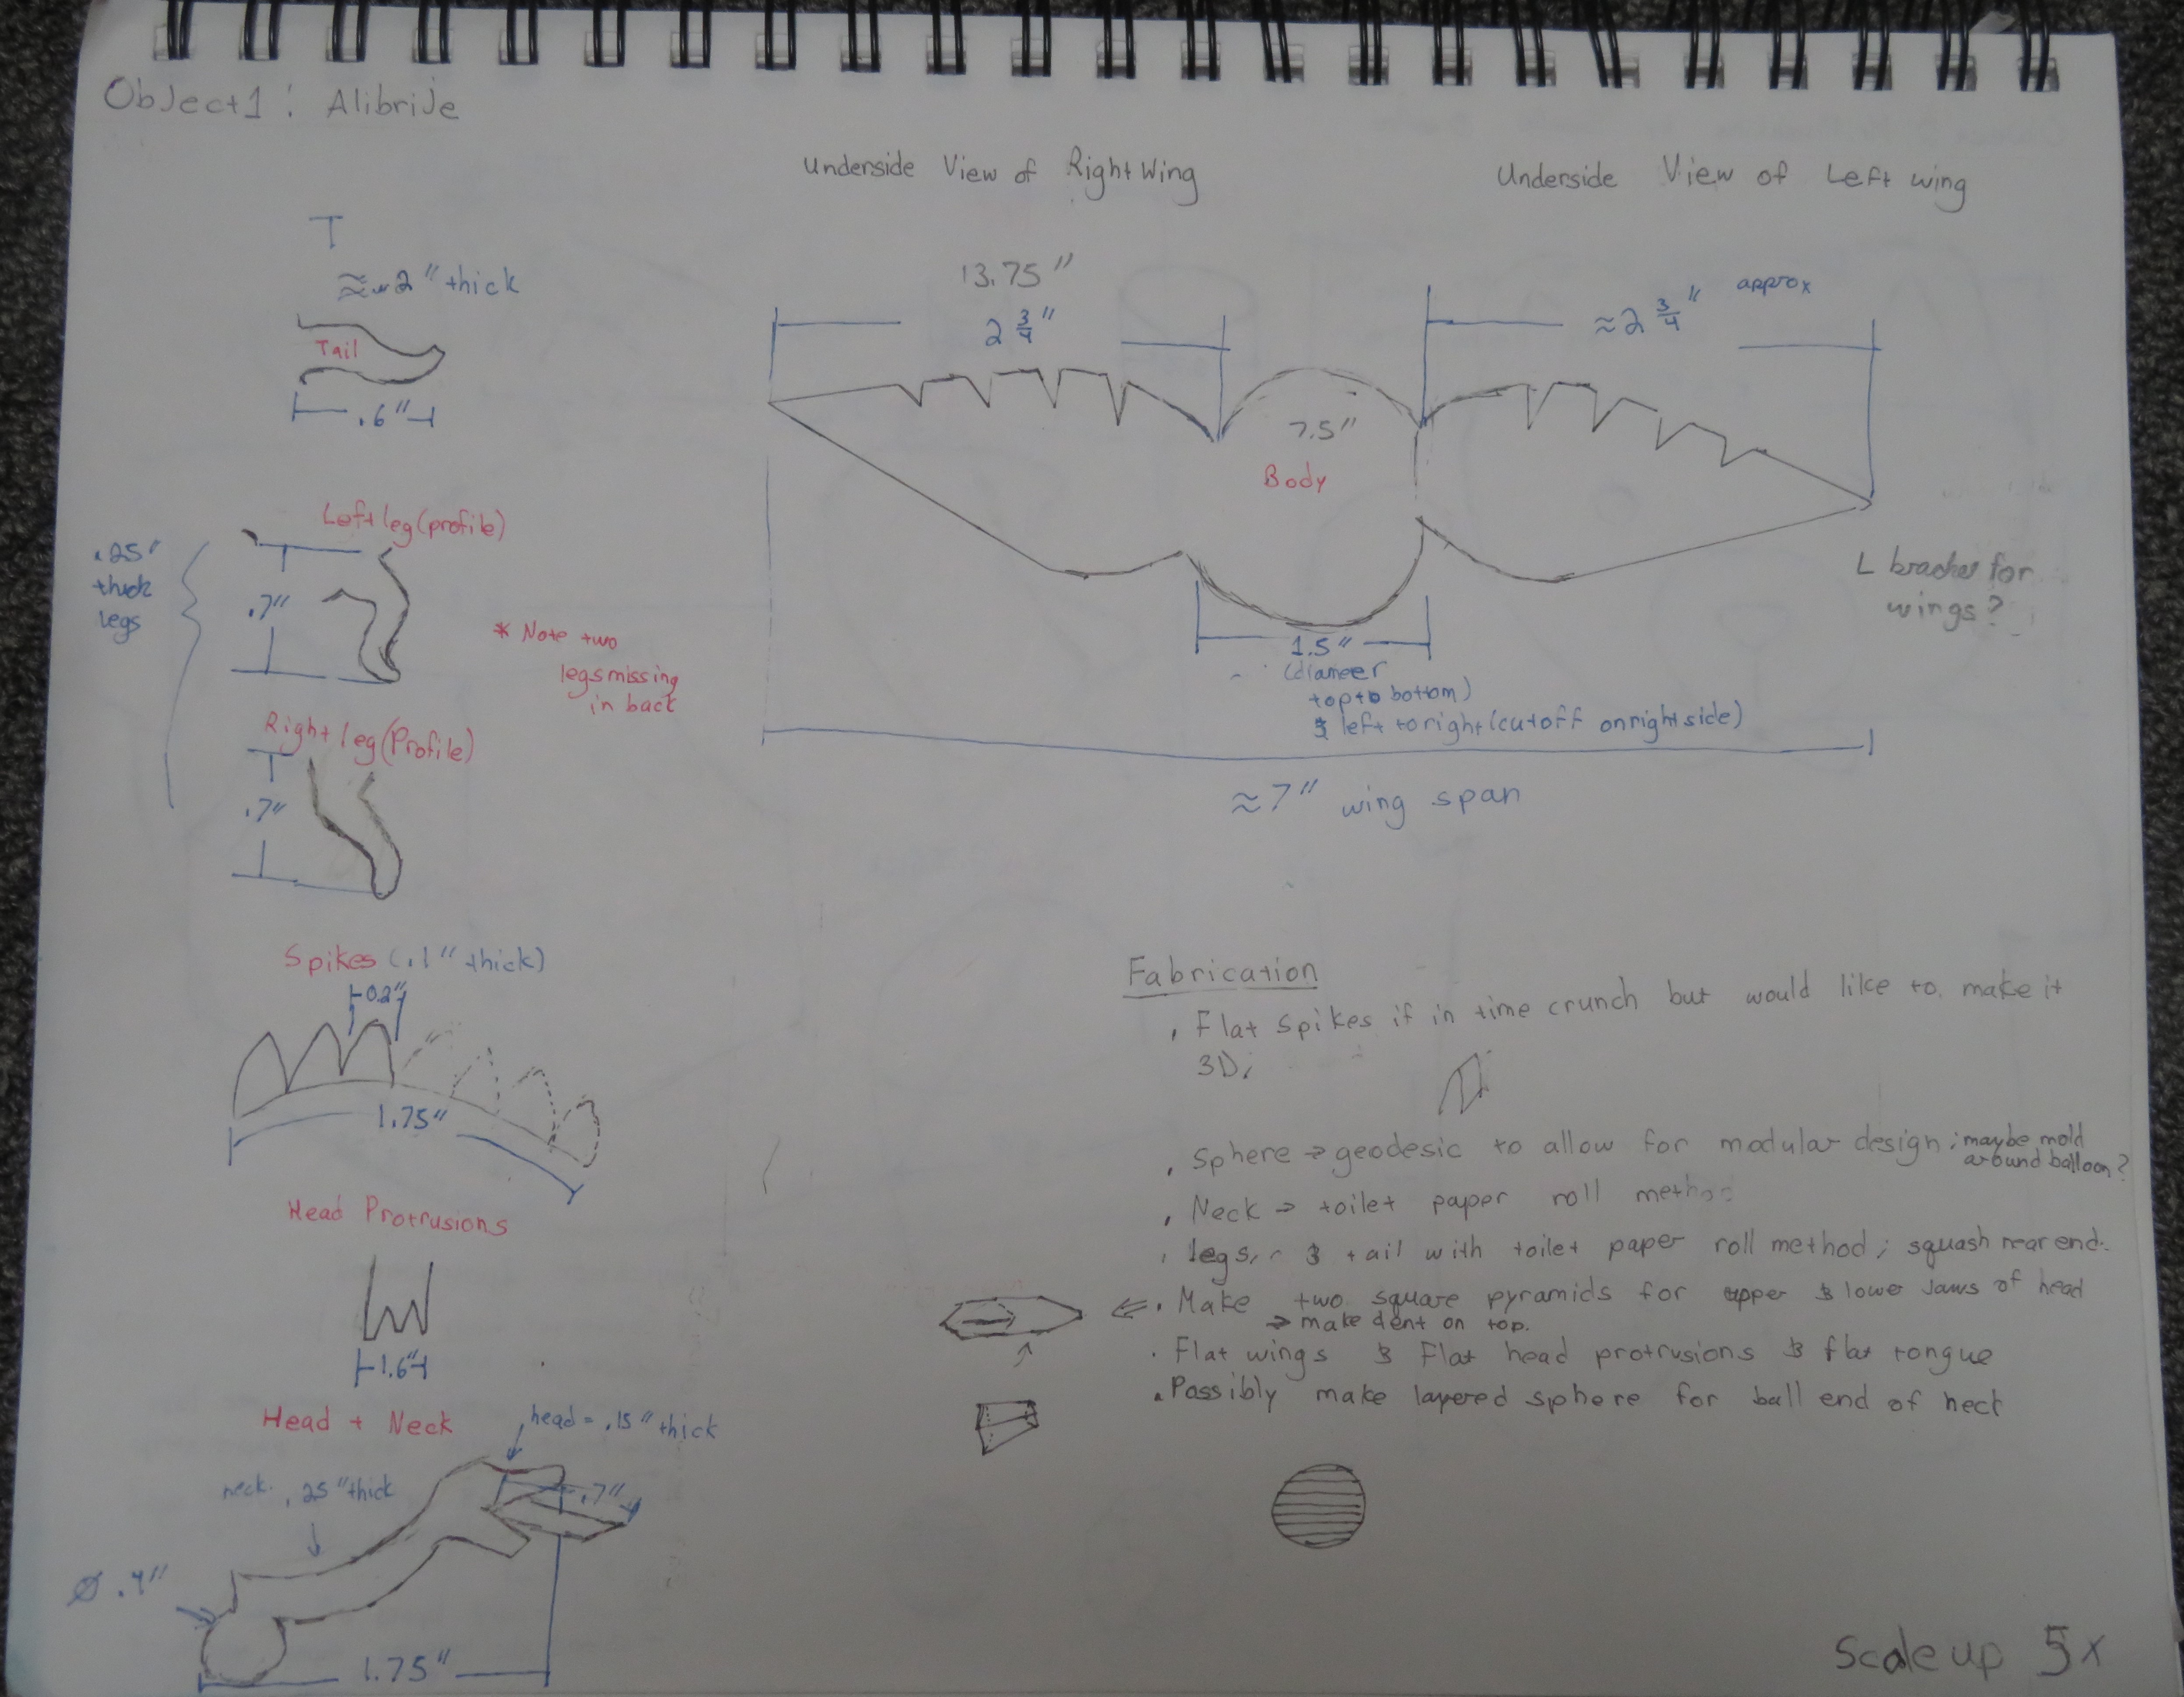 Object1: Alibrije
Underside View of Right Wing
Underside View of Left wing
T
≈ .2" thick
Tail
.6"
13.75"
2 3/4"
≈2 3/4" approx
7.5"
Body
Left leg (profile)
.25"
thick
legs
.7"
* Note two
legs missing
in back
Right leg (Profile)
.7"
L bracket for
wings?
1.5"
(diameer
top to bottom)
& left to right (cutoff on right side)
≈7" wing span
Spikes (.1" thick)
0.2"
1.75"
Head Protrusions
1.6"
Head + Neck
head = .15" thick
neck .25" thick
.7"
Ø .4"
1.75"
Fabrication
. Flat spikes if in time crunch but would like to make it
3D;
. Sphere → geodesic to allow for modular design; maybe mold
around balloon?
. Neck → toilet paper roll method
. legs, & tail with toilet paper roll method; squash rear end.
⇐ . Make two square pyramids for upper & lower jaws of head
→ make dent on top.
. Flat wings & Flat head protrusions & flat tongue
. Possibly make layered sphere for ball end of neck
Scale up 5x